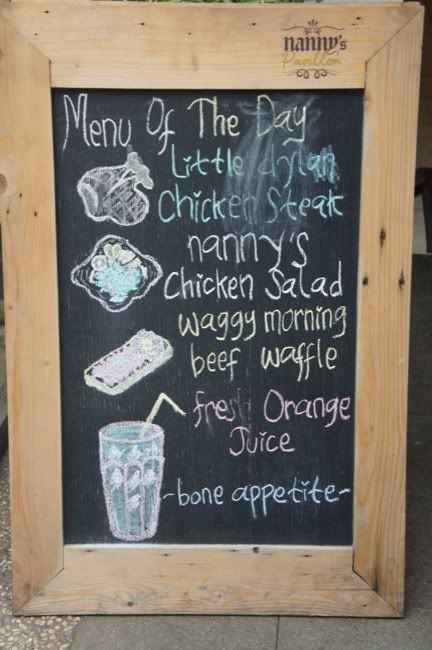 nanny's
Pavillon
Menu Of The Day
Little dylan
Chicken Steak
nanny's
Chicken Salad
waggy morning
beef waffle
fresh Orange
Juice
-bone appetite-